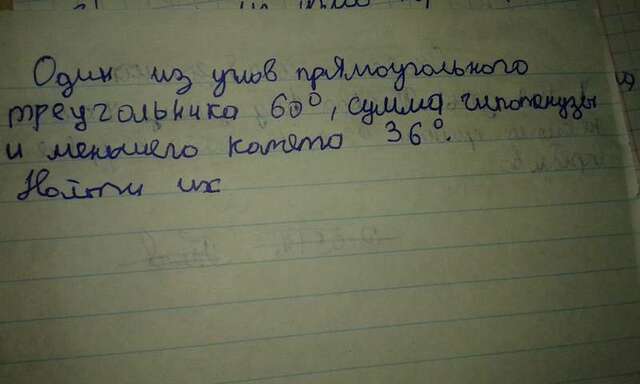 Один из углов прямоугольного
треугольника 60°, сумма гипотенузы
и меньшего катета 36°.
Найти их